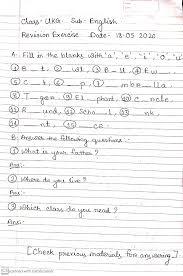 Class- UKG Sub- English
Revision Exercise Date- 18.05.2020
A. Fill in the blanks with 'a', 'e', 'i', 'o', 'u'
① B_t ② wl ③ B_ll ④ Ew
⑤ C_t ⑥ p_ ⑦ mb_lla
⑧ T_ger ⑨ El_phant ⑩ C_ncle
⑪ R_nd ⑫ Scho_l ⑬ nk
⑭ nt ⑮ ce
B. Answer the following questions-
① What is your father?
Ans-
② Where do you live?
Ans-
③ Which class do you read?
Ans-
[Check previous materials for answering]